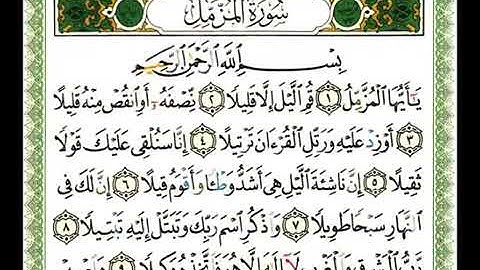 سُورَةُ الْمُزَّمِّلِ
بِسْمِ اللَّهِ الرَّحْمَٰنِ الرَّحِيمِ
يَٰٓأَيُّهَا ٱلْمُزَّمِّلُ ١ قُمِ ٱلَّيْلَ إِلَّا قَلِيلًا ٢ نِّصْفَهُۥٓ أَوِ ٱنقُصْ مِنْهُ قَلِيلًا
٣ أَوْ زِدْ عَلَيْهِ وَرَتِّلِ ٱلْقُرْءَانَ تَرْتِيلًا ٤ إِنَّا سَنُلْقِى عَلَيْكَ قَوْلًا
ثَقِيلًا ٥ إِنَّ نَاشِئَةَ ٱلَّيْلِ هِىَ أَشَدُّ وَطْـًٔا وَأَقْوَمُ قِيلًا ٦ إِنَّ لَكَ فِى
ٱلنَّهَارِ سَبْحًا طَوِيلًا ٧ وَٱذْكُرِ ٱسْمَ رَبِّكَ وَتَبَتَّلْ إِلَيْهِ تَبْتِيلًا ٨
رَّبُّ ٱلْمَشْرِقِ وَٱلْمَغْرِبِ لَآ إِلَٰهَ إِلَّا هُوَ فَٱتَّخِذْهُ وَكِيلًا ٩